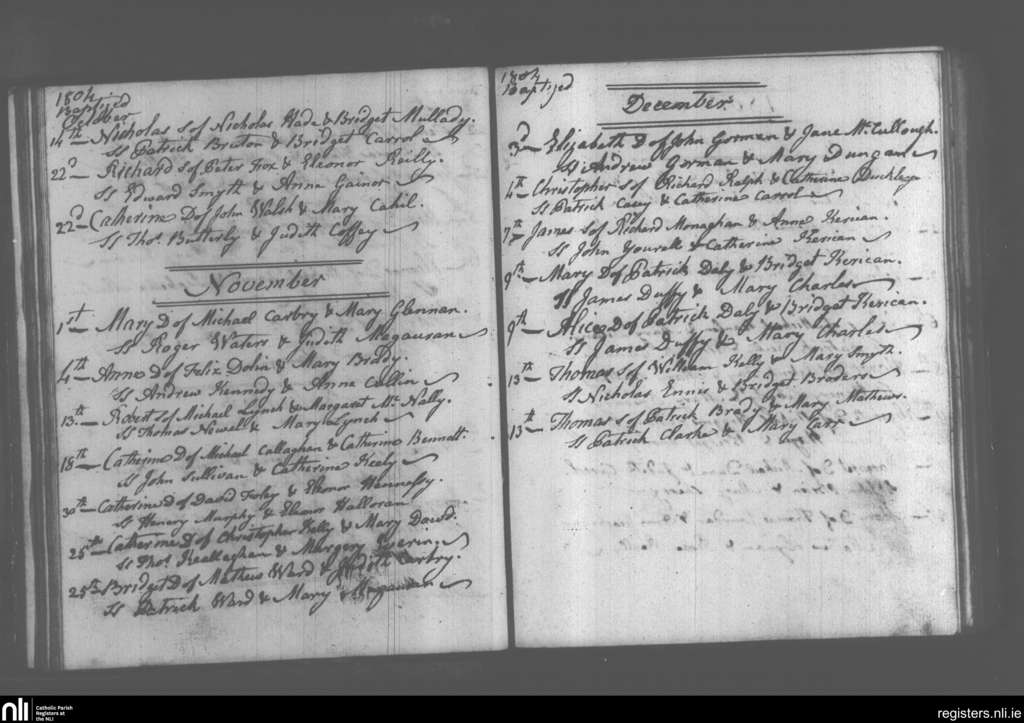 1804
Baptized
October
14th Nicholas S of Nicholas Wade & Bridget Mullady.
Ss Patrick Bruton & Bridget Carrol
22d Richard S of Peter Fox & Eleonor Reilly.
Ss Edward Smyth & Anne Gainor
22d Catherine D of John Walsh & Mary Cahil.
Ss Thos. Butterly & Judith Coffey
November
1st Mary D of Michael Carbry & Mary Glennan.
Ss Roger Waters & Judith Magauran
4th Anne D of Felix Dolin & Mary Brady.
Ss Andrew Kennedy & Anne Cullin
13th Robert S of Michael Lynch & Margaret Mc. Nally.
Ss Thomas Nowel & Mary Lynch
18th Catherine D of Michael Callaghan & Catherine Bennett.
Ss John Sullivan & Catherine Kealy
30th Catherine D of David Foley & Eleonor Hennessy.
Ss Henery Murphy & Eleanor Halloran
25th Catherine D of Christopher Kelly & Mary David.
Ss Thos. Keallaghan & Margery
25th Bridget D of Mathew Ward & Judith Carbry.
Ss Patrick Ward & Mary Magauran
1804
Baptized
December
3d Elizabeth D of John Gorman & Jane Mc. Cullough.
Ss Andrew Gorman & Mary Duncan
4th Christopher S of Richard Ralph & Catherine Buckley
Ss Patrick Casey & Catherine Carrol
7th James S of Richard Monaghan & Anne Kerican.
Ss John Yourell & Catherine Kerican
9th Mary D of Patrick Daly & Bridget Kerican.
Ss James Duffy & Mary Charles
9th Alice D of Patrick Daly & Bridget Kerican.
Ss James Duffy & Mary Charles
13th Thomas S of William Kelly & Mary Smyth.
Ss Nicholas Ennis & Bridget Broders
13th Thomas S of Patrick Brady & Mary Mathews.
Ss Patrick Clarke & Mary Carr
nli
Catholic Parish
Registers at
the NLI
registers.nli.ie